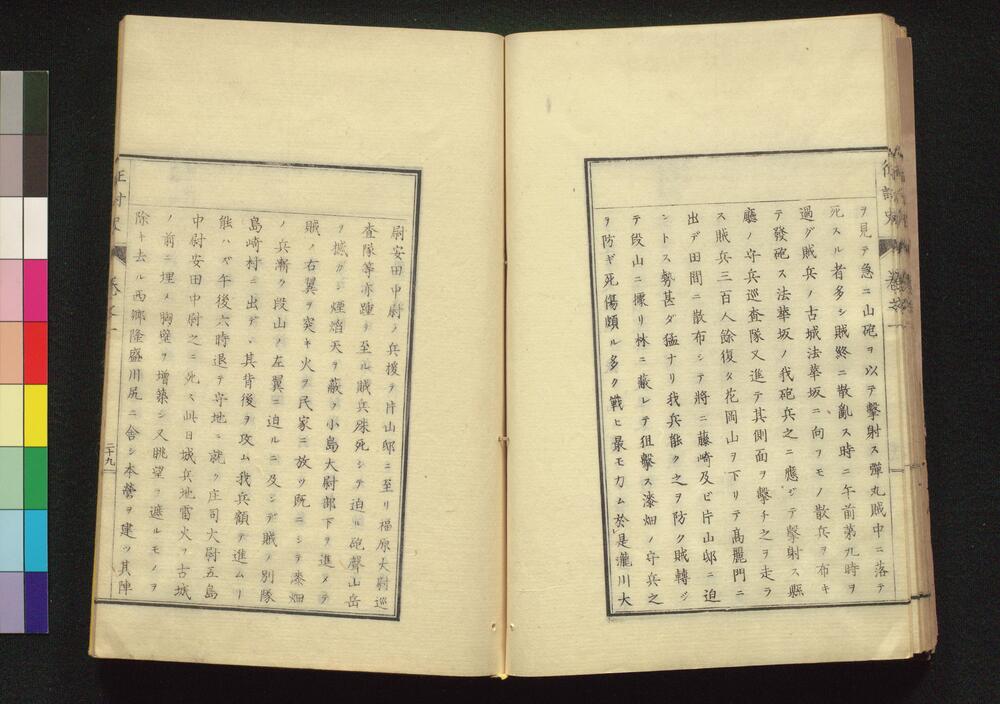 ヲ見テ急ニ山砲ヲ以テ擊射ス彈丸賊中ニ落テ
死スル者多シ賊終ニ散亂ス時ニ午前第九時ヲ
過グ賊兵ノ古城法華坂ニ向フモノ散兵ヲ布キ
テ發砲ス法華坂ノ我砲兵之ニ應ジテ擊射ス縣
廳ノ守兵巡查隊又進テ其側面ヲ擊チ之ヲ走ラ
ス賊兵三百人餘復タ花岡山ヲ下リテ高麗門ニ
出デ田間ニ散布シテ將ニ藤崎及ビ片山邸ニ迫
ントス勢甚ダ猛ナリ我兵能ク之ヲ防ク賊轉ジ
テ段山ニ據リ林ニ蔽レテ狙擊ス漆畑ノ守兵之
ヲ防ギ死傷頗ル多ク戰ヒ最モ力ム於是瀧川大
尉安田中尉ノ兵援ヲ片山邸ニ至リ福原大尉巡
查隊等亦踵デ至ル賊兵殊死シテ迫ル砲聲山岳
ヲ撼カシ煙焰天ヲ蔽フ小島大尉部下ヲ進メテ
賊ノ右翼ヲ突キ火ヲ民家ニ放ツ既ニシテ漆畑
ノ兵漸ク段山ノ左翼ニ迫ルニ及ンデ賊ノ別隊
島崎村ニ出デ、其背後ヲ攻ム我兵額テ進ムﾘ
能ハズ午後六時退テ守地ニ就ク庄司大尉五島
中尉安田中尉之ニ死ス此日城兵地雷火ヲ古城
ノ前ニ埋メ胸壁ヲ增築シ又眺望ヲ遮ルモノヲ
除キ去ル西鄉隆盛川尻ニ舍シ本營ヲ建ツ其陣
二十九